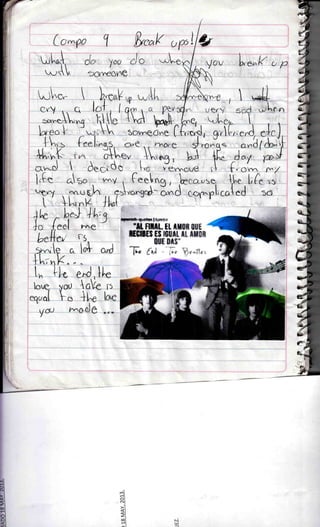 Compo 9 Break ups!
What do you do when you break up
with someone
When I break up with someone, I will
cry a lot, I am a person very sad when
something little that one, when I
break with someone (friend, girlfriend, etc)
this feelings are more strongs and/don't
think in other thing, but the day past
and I decide to remove it from my
life also my feeling, because the life is
very much and complicated so
I think that
the best thig
to feel me
better is
smile a lot and
think...
In the end, the
love you take is
equal to the love
you made...
"AL FINAL, EL AMOR QUE
RECIBES ES IGUAL AL AMOR
QUE DAS"
The End - The Beatles
18 MAY 2013